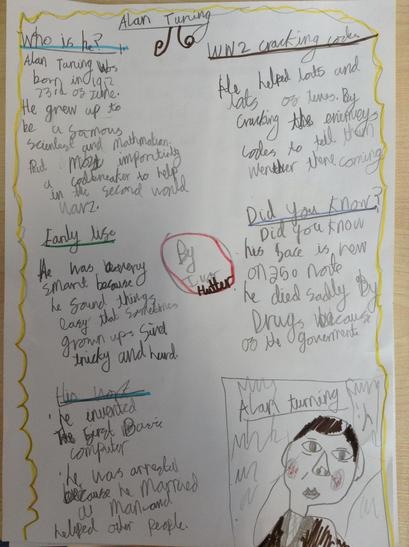 Alan Turing
Who is he?
Alan Turing was
born in 1912
23rd of June.
He grew up to
be a famous
Scientist and Mathmatian.
But most importinly
a codbreaker to help
in the second world
War2.
Early life
He was very
smart because
he found things
easy that sometimes
grown ups find
tricky and hard.
His work
he invented
The First Basic
computer
he was arrested
because he Married
a Man and
helped other People.
By
Hunter
WW2 cracking codes
He helped lots and
lots of lives. By
cracking the enimeys
codes to tell them
wenther there coming
Did you know?
Did you know
his face is now
on a 50 note
he died sadly By
Drugs because
of the goverment
Alan turning